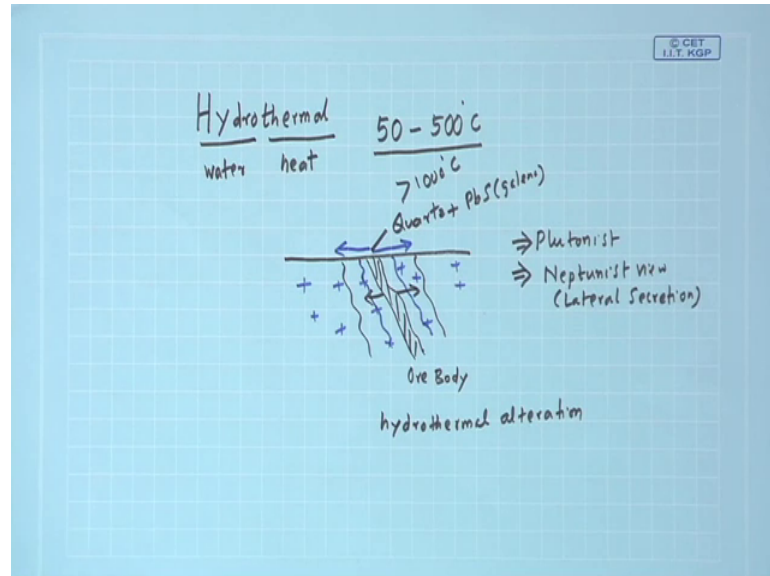 © CET
I.I.T. KGP
Hydrothermal
water heat
50 - 500°C
>1000°C
Quartz + PbS (Galena)
⇒ Plutonist
⇒ Neptunist view
(Lateral Secretion)
Ore Body
hydrothermal alteration